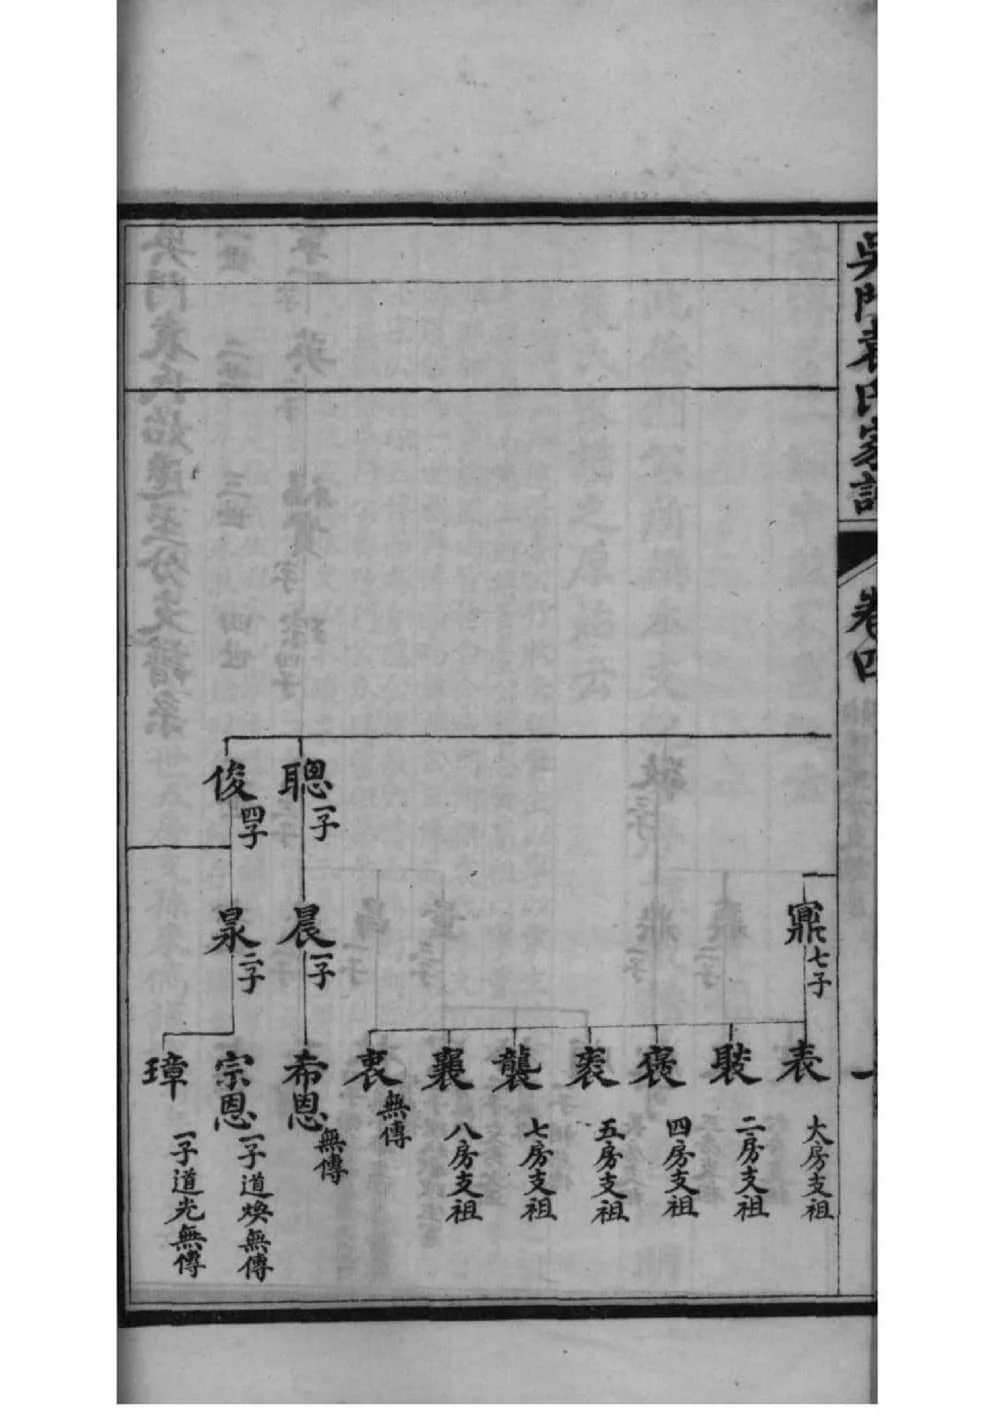 吳門袁氏家譜
卷四
一
鼐七子
表
大房支祖
褧
二房支祖
褒
四房支祖
裘
五房支祖
襲
七房支祖
襄
八房支祖
衷無傳
聰一子
晨一子
希恩無傳
俊四子
杲二子
宗恩一子道煥無傳
璋一子道光無傳